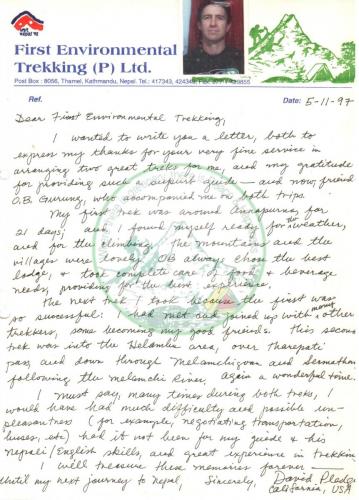 First Environmental
Trekking (P) Ltd.
Post Box : 8056, Thamel, Kathmandu, Nepal. Tel.: 417343,
Ref.
Date: 5-11-97
Dear First Environmental Trekking,
I wanted to write you a letter, both to
express my thanks for your very fine service in
arranging two great treks for me, and my gratitude
for providing such a superb guide — and now, friend
O.B. Gurung, who accompanied me on both trips.
My first trek was around Annapurna, for
21 days; and I found myself ready for weather,
and for the climbing. The mountains and the
villages were lovely. OB always chose the best
lodge, & took complete care of food & beverage
needs, providing for the best experience.
The next trek I took because the first was
so successful: I had met and joined up with many other
trekkers, some becoming my good friends. This second
trek was into the Helambu area, over Tharepati
pass, and down through Melamchigaon and Sermathan
following the Melamchi River. Again a wonderful time.
I must say, many times during both treks, I
would have had much difficulty and possible un-
pleasantness (for example, negotiating transportation,
buses, etc) had it not been for my guide & his
Nepali/English skills, and great experience in trekking
I will treasure these memories forever —
until my next journey to Nepal, Sincerely, David Pledger
California, USA